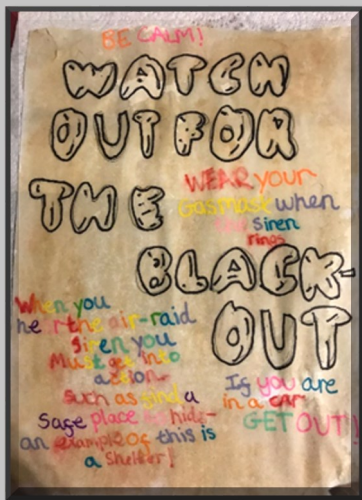 BE CALM!
WATCH
OUT FOR
THE
WEAR your
Gasmask when
the siren
rings
BLACK-
OUT
When you
hear the air-raid
siren you
Must get into
action
such as find a
Sage place to hide-
an example of this is
a Shelter!
If you are
in a car
GET OUT!